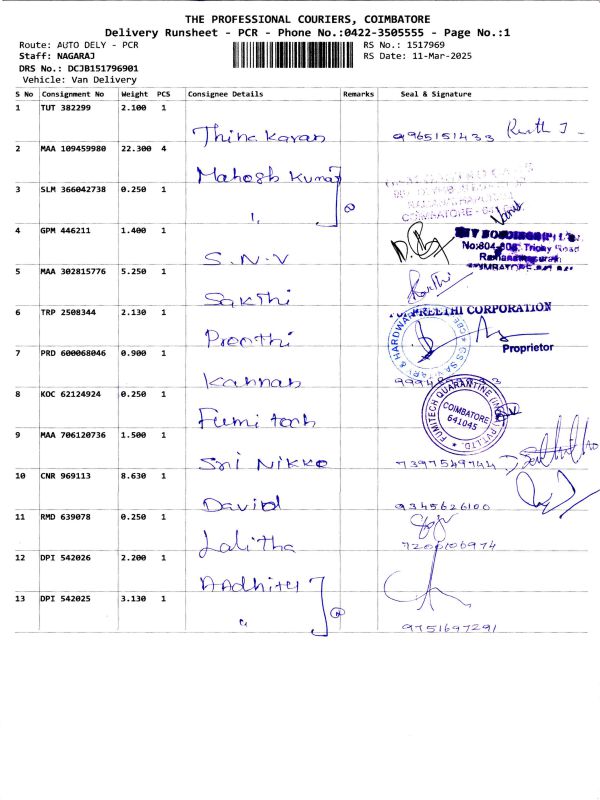 THE PROFESSIONAL COURIERS, COIMBATORE
Delivery Runsheet - PCR - Phone No.:0422-3505555 - Page No.:1
Route: AUTO DELY - PCR RS No.: 1517969
Staff: NAGARAJ RS Date: 11-Mar-2025
DRS No.: DCJB151796901
Vehicle: Van Delivery
S No Consignment No Weight PCS Consignee Details Remarks Seal & Signature
1 TUT 382299 2.100 1
Thinakaran 9965151433
2 MAA 109459980 22.300 4
Mahesh Kumar
3 SLM 366042738 0.250 1
COIMBATORE
4 GPM 446211 1.400 1
S.N.V No:804-806, Trichy Road
5 MAA 302815776 5.250 1
Sakthi
6 TRP 2508344 2.130 1 PREETHI CORPORATION
Preethi Proprietor
7 PRD 600068046 0.900 1
Kannan
8 KOC 62124924 0.250 1
Fumitech FUMITECH QUARANTINE (INDIA) PVT.LTD. COIMBATORE 641045
9 MAA 706120736 1.500 1
Sri Nikko 7397549744
10 CNR 969113 8.630 1
David 9345626100
11 RMD 639078 0.250 1
Lalitha 7200106974
12 DPI 542026 2.200 1
AAdhity
13 DPI 542025 3.130 1
9751697291